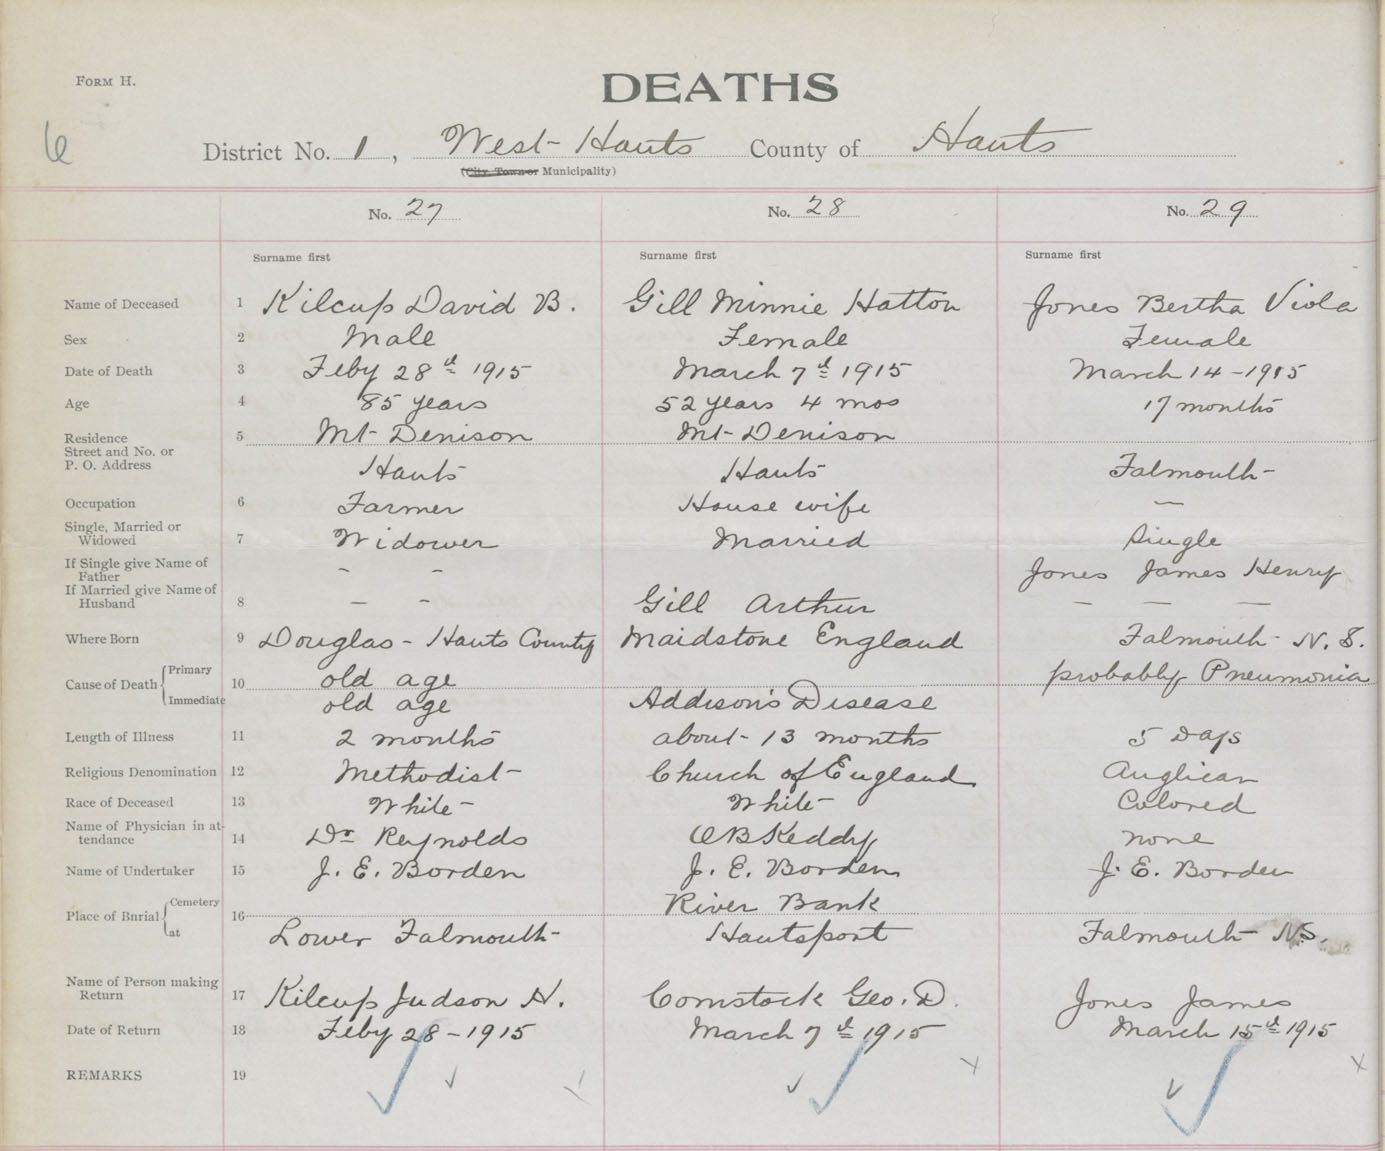 FORM H.
DEATHS
6
District No. 1, West Hants County of Hants
(City, Town or Municipality)
No. 27 No. 28 No. 29
Surname first Surname first Surname first
Name of Deceased 1 Kilcup David B. Gill Minnie Hatton Jones Bertha Viola
Sex 2 Male Female Female
Date of Death 3 Feby 28th 1915 March 7th 1915 March 14 - 1915
Age 4 85 years 52 years 4 mos 17 months
Residence 5 Mt Denison Mt Denison
Street and No. or
P. O. Address Hants Hants Falmouth
Occupation 6 Farmer House wife —
Single, Married or
Widowed 7 Widower Married Single
If Single give Name of
Father – – Jones James Henry
If Married give Name of
Husband 8 – – Gill Arthur – – –
Where Born 9 Douglas - Hants County Maidstone England Falmouth N. S.
Cause of Death { Primary 10 old age probably Pneumonia
Immediate old age Addison's Disease
Length of Illness 11 2 months about 13 months 5 Days
Religious Denomination 12 Methodist Church of England Anglican
Race of Deceased 13 White White Colored
Name of Physician in at-
tendance 14 Dr Reynolds O B Keddy none
Name of Undertaker 15 J. E. Borden J. E. Borden J. E. Borden
Place of Burial { Cemetery 16 River Bank
at Lower Falmouth Hantsport Falmouth N.S.
Name of Person making
Return 17 Kilcup Judson H. Comstock Geo. D. Jones James
Date of Return 18 Feby 28 - 1915 March 7th 1915 March 15th 1915
REMARKS 19